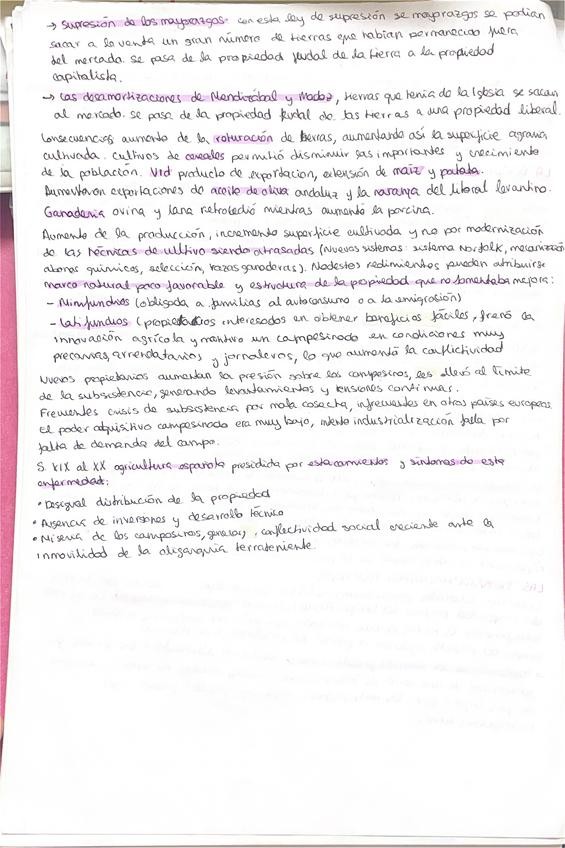 → Supresión de los mayorazgos: con esta ley de supresión se mayorazgos se podían
sacar a la venta un gran número de tierras que habían permanecido fuera
del mercado. se pasa de la propiedad feudal de la tierra a la propiedad
capitalista.
→ Las desamortizaciones de Mendizábal y Madoz, tierras que tenía de la Iglesia se sacan
al mercado. se pasa de la propiedad feudal de las tierras a una propiedad liberal.
Consecuencias aumento de la roturación de tierras, aumentando así la superficie agraria
cultivada. cultivos de cereales permitió disminuir sus importantes y crecimiento
de la población. Vid producto de exportación, extensión de maíz y patata.
Aumentaron exportaciones de aceite de oliva andaluz y la naranja del litoral levantino.
Ganadería ovina y lana retrocedió mientras aumentó la porcina.
Aumento de la producción, incremento superficie cultivada y no por modernización
de las técnicas de cultivo siendo atrasadas (Nuevos sistemas: sistema Norfolk, mecanización
abonos químicos, selección, razas ganaderas). Modestos redimientos pueden atribuirse
marco natural poco favorable y estructura de la propiedad que no fomentaba mejora:
- Minifundios (obligada a familias al autoconsumo o a la emigración)
- Latifundios (propietarios interesados en obtener beneficios fáciles, frenó la
innovación agrícola y mantuvo un campesinado en condiciones muy
precarias, arrendatarios y jornaleros, lo que aumentó la conflictividad
Nuevos propietarios aumentan la presión sobre los campesinos, les llevó al límite
de la subsistencia, generando levantamientos y tensiones continuas.
Frecuentes crisis de subsistencia por mala cosecha, infrecuentes en otros países europeos.
El poder adquisitivo campesinado era muy bajo, intento industrialización falla por
falta de demanda del campo.
S. XIX al XX agricultura española presidida por estancamientos y síntomas de esta
enfermedad:
• Desigual distribución de la propiedad
• Ausencia de inversiones y desarrollo técnico
• Miseria de los campesinos, general, conflictividad social creciente ante la
inmovilidad de la oligarquía terrateniente.